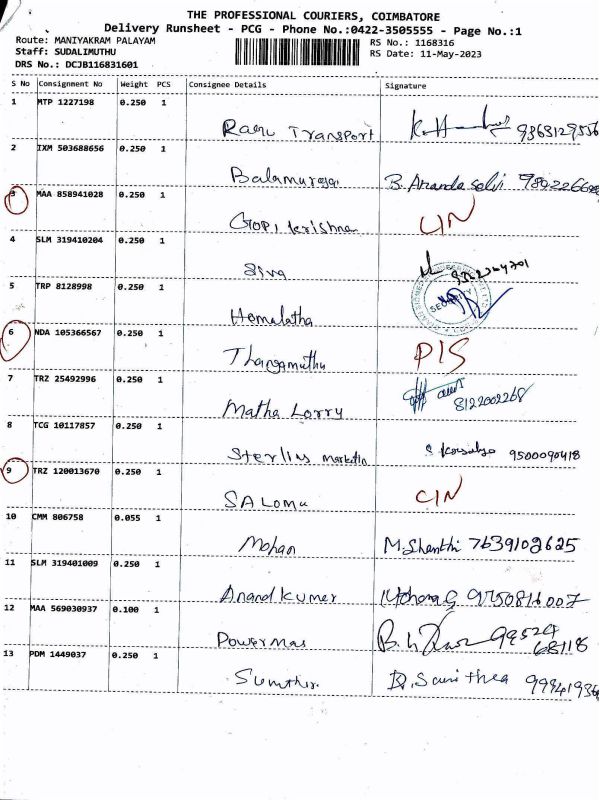 THE PROFESSIONAL COURIERS, COIMBATORE
Delivery Runsheet - PCG - Phone No.:0422-3505555 - Page No.:1
Route: MANIYAKRAM PALAYAM
RS No.: 1168316
Staff: SUDALIMUTHU
RS Date: 11-May-2023
DRS No.: DCJB116831601
S No Consignment No Weight PCS Consignee Details Signature
1 MTP 1227198 0.250 1
Ramu Transport 9363129556
2 IXM 503688656 0.250 1
Balamurugan B. Ananda Selvi
3 MAA 858941028 0.250 1
Gopi krishna CIN
4 SLM 319410204 0.250 1
Siva
5 TRP 8128998 0.250 1
SECURITY
Hemalatha
6 NDA 105366567 0.250 1
Thangamuthu PIS
7 TRZ 25492996 0.250 1
Matha Lorry 8122002268
8 TCG 10117857 0.250 1
Sterling marketin 9500090418
9 TRZ 120013670 0.250 1
SALOMU CIN
10 CMM 806758 0.055 1
Mohan M.Shanthi 7639102625
11 SLM 319401009 0.250 1
Anand Kumar 9750816007
12 MAA 569030937 0.100 1
Powermas 99524
68118
13 PDM 1449037 0.250 1